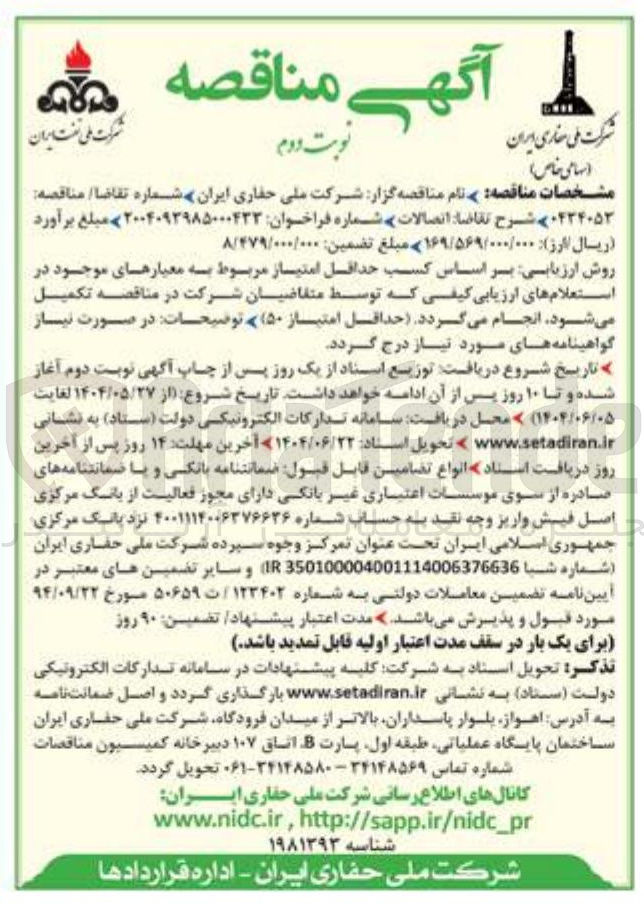 آگهی مناقصه
نوبت دوم
شرکت ملی نفت ایران
شرکت ملی حفاری ایران
(سهامی خاص)
مشخصات مناقصه: نام مناقصه‌گزار: شرکت ملی حفاری ایران شماره تقاضا/ مناقصه:
۰۴۳۴۰۵۳ شرح تقاضا: اتصالات شماره فراخوان: ۲۰۰۴۰۹۳۹۸۵۰۰۰۴۳۳ مبلغ برآورد
(ریال/ارز): ۱۶۹/۵۶۹/۰۰۰/۰۰۰ مبلغ تضمین: ۸/۴۷۹/۰۰۰/۰۰۰
روش ارزیابی: بر اساس کسب حداقل امتیاز مربوط به معیارهای موجود در
استعلام‌های ارزیابی کیفی که توسط متقاضیان شرکت در مناقصه تکمیل
می‌شود، انجام می‌گردد. (حداقل امتیاز ۵۰) توضیحات: در صورت نیاز
گواهینامه‌های مورد نیاز درج گردد.
تاریخ شروع دریافت: توزیع اسناد از یک روز پس از چاپ آگهی نوبت دوم آغاز
شده و تا ۱۰ روز پس از آن ادامه خواهد داشت. تاریخ شروع: (از ۱۴۰۴/۰۵/۲۷ لغایت
۱۴۰۴/۰۶/۰۵) محل دریافت: سامانه تدارکات الکترونیکی دولت (ستاد) به نشانی
www.setadiran.ir تحویل اسناد: ۱۴۰۴/۰۶/۲۲ آخرین مهلت: ۱۴ روز پس از آخرین
روز دریافت اسناد انواع تضامین قابل قبول: ضمانتنامه بانکی و یا ضمانتنامه‌های
صادره از سوی موسسات اعتباری غیر بانکی دارای مجوز فعالیت از بانک مرکزی
اصل فیش واریز وجه نقد به حساب شماره ۴۰۰۱۱۱۴۰۰۶۳۷۶۶۳۶ نزد بانک مرکزی
جمهوری اسلامی ایران تحت عنوان تمرکز وجوه سپرده شرکت ملی حفاری ایران
(شماره شبا IR 350100004001114006376636) و سایر تضمین های معتبر در
آیین‌نامه تضمین معاملات دولتی به شماره ۱۲۳۴۰۲ / ت ۵۰۶۵۹ مورخ ۹۴/۰۹/۲۲
مورد قبول و پذیرش می‌باشد. مدت اعتبار پیشنهاد/ تضمین: ۹۰ روز
(برای یک بار در سقف مدت اعتبار اولیه قابل تمدید باشد.)
تذکر: تحویل اسناد به شرکت: کلیه پیشنهادات در سامانه تدارکات الکترونیکی
دولت (ستاد) به نشانی www.setadiran.ir بارگذاری گردد و اصل ضمانت‌نامه
به آدرس: اهواز، بلوار پاسداران، بالاتر از میدان فرودگاه، شرکت ملی حفاری ایران
ساختمان پایگاه عملیاتی، طبقه اول، پارت B، اتاق ۱۰۷ دبیرخانه کمیسیون مناقصات
شماره تماس ۳۴۱۴۸۵۶۹ – ۳۴۱۴۸۵۸۰-۰۶۱ تحویل گردد.
کانال‌های اطلاع‌رسانی شرکت ملی حفاری ایران:
www.nidc.ir , http://sapp.ir/nidc_pr
شناسه ۱۹۸۱۳۹۳
شرکت ملی حفاری ایران - اداره قراردادها